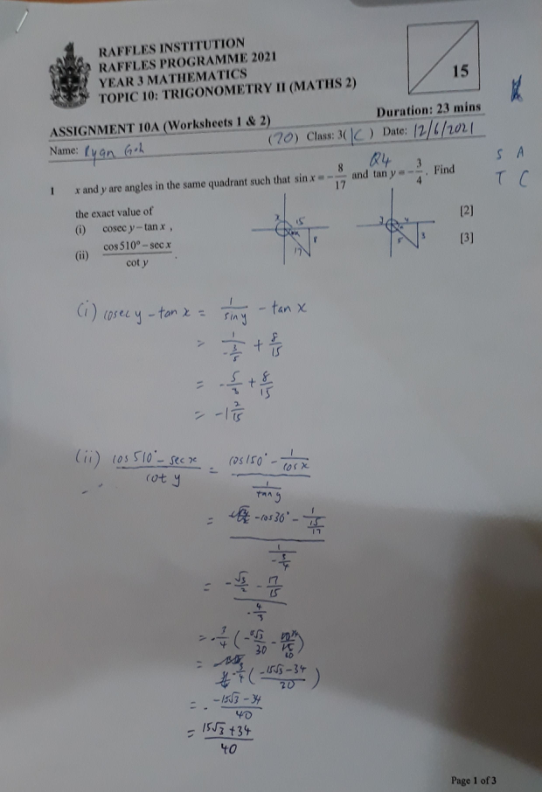 RAFFLES INSTITUTION
RAFFLES PROGRAMME 2021
YEAR 3 MATHEMATICS
TOPIC 10: TRIGONOMETRY II (MATHS 2)
15
ASSIGNMENT 10A (Worksheets 1 & 2)
Duration: 23 mins
Name: Ryan Goh (20) Class: 3(K) Date: 12/6/2021
Q4
S A
T C
1 x and y are angles in the same quadrant such that sin x = -8/17 and tan y = -3/4. Find
the exact value of
(i) cosec y – tan x , [2]
(ii) (cos 510° – sec x)/(cot y) . [3]
x 15 8 17
3 5
(i) cosec y - tan x = 1/sin y - tan x
= 1/(-3/5) + 8/15
= -5/3 + 8/15
= -1 2/15
(ii) (cos 510° - sec x)/(cot y) = (cos 150° - 1/cos x)/(1/tan y)
= (-cos 30° - 1/(15/17))/(1/(-3/4))
= (-√3/2 - 17/15)/(-4/3)
= -3/4 (-15√3/30 - 34/30)
= -3/4 ((-15√3 - 34)/30)
= - (-15√3 - 34)/40
= (15√3 + 34)/40
Page 1 of 3